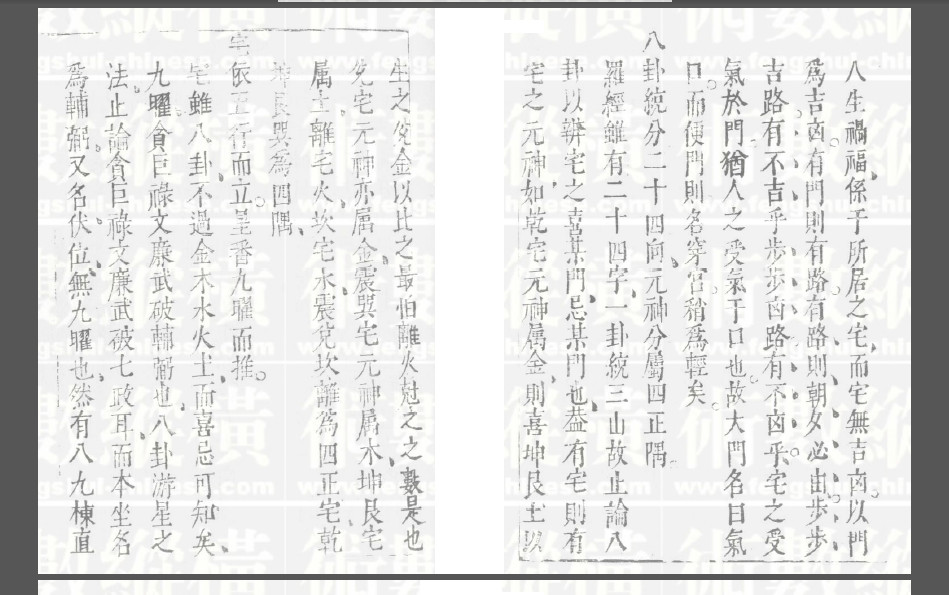 人生禍福係于所居之宅而宅無吉凶以門
爲吉凶有門則有路有路則朝夕必由步步
吉路有不吉乎步步凶路有不凶乎宅之受
氣於門猶人之受氣于口也故大門名曰氣
口而便門則名穿宮稍爲輕矣
八卦統分二十四向元神分屬四正隅
羅經雖有二十四字一卦統三山故止論八
卦以辨宅之喜某門忌某門也葢有宅則有
宅之元神如乾宅元神属金則喜坤艮土以
生之兌金以比之最怕離火尅之之數是也
兌宅元神亦属金震巽宅元神属木坤艮宅
属土離宅火坎宅水震兌坎離爲四正宅乾
坤艮巽爲四隅
宅依五行而立星番九曜而推
宅雖八卦不過金木水火土而喜忌可知矣
九曜貪巨祿文廉武破輔弼也八卦游星之
法止論貪巨祿文廉武破七政耳而本坐名
爲輔弼又名伏位無九曜也然有八九棟直